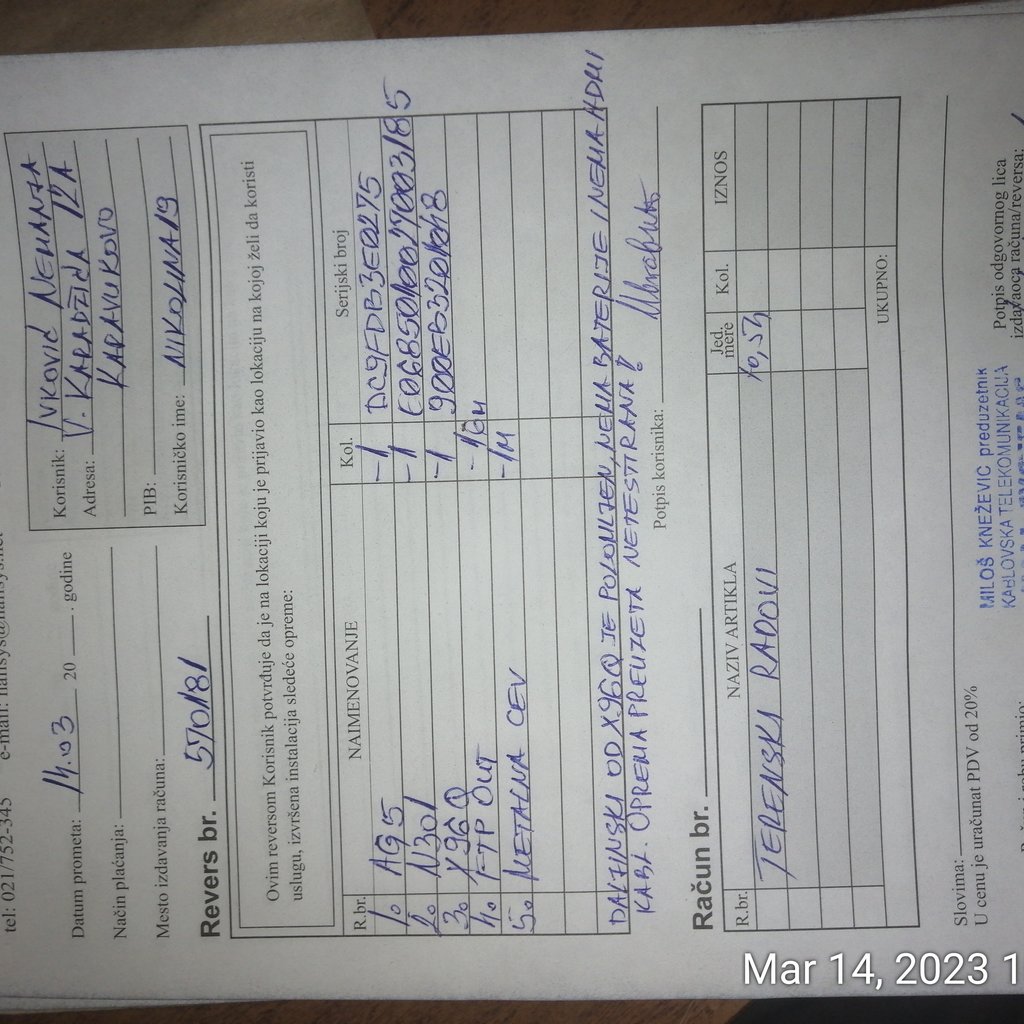 tel: 021/752-345
Datum prometa: 14.03 20 . godine
Način plaćanja:
Mesto izdavanja računa:
Korisnik: IVKOVIĆ NEMANJA
Adresa: V. KARADŽIĆA 12A
KARAVUKOVO
PIB:
Korisničko ime: NIKOLINA19
Revers br. 570181
Ovim reversom Korisnik potvrđuje da je na lokaciji koju je prijavio kao lokaciju na kojoj želi da koristi
uslugu, izvršena instalacija sledeće opreme:
R.br. NAIMENOVANJE Kol. Serijski broj
1. AG5 -1 DC9FDB3E0275
2. N301 -1
3. X96Q -1
4. FTP OUT -16M
5. METALNA CEV -1M
DALJINSKI OD X96Q JE POLOMLJEN, NEMA BATERIJE I NEMA HDMI
KABL. OPREMA PREUZETA NETESTIRANA!
Potpis korisnika:
Račun br.
R.br. NAZIV ARTIKLA Jed. mere Kol. IZNOS
TERENSKI RADOVI
UKUPNO:
Slovima:
U cenu je uračunat PDV od 20%
MILOŠ KNEŽEVIĆ preduzetnik
KABLOVSKA TELEKOMUNIKACIJA
Potpis odgovornog lica
izdavaoca računa/reversa:
Mar 14, 2023 1